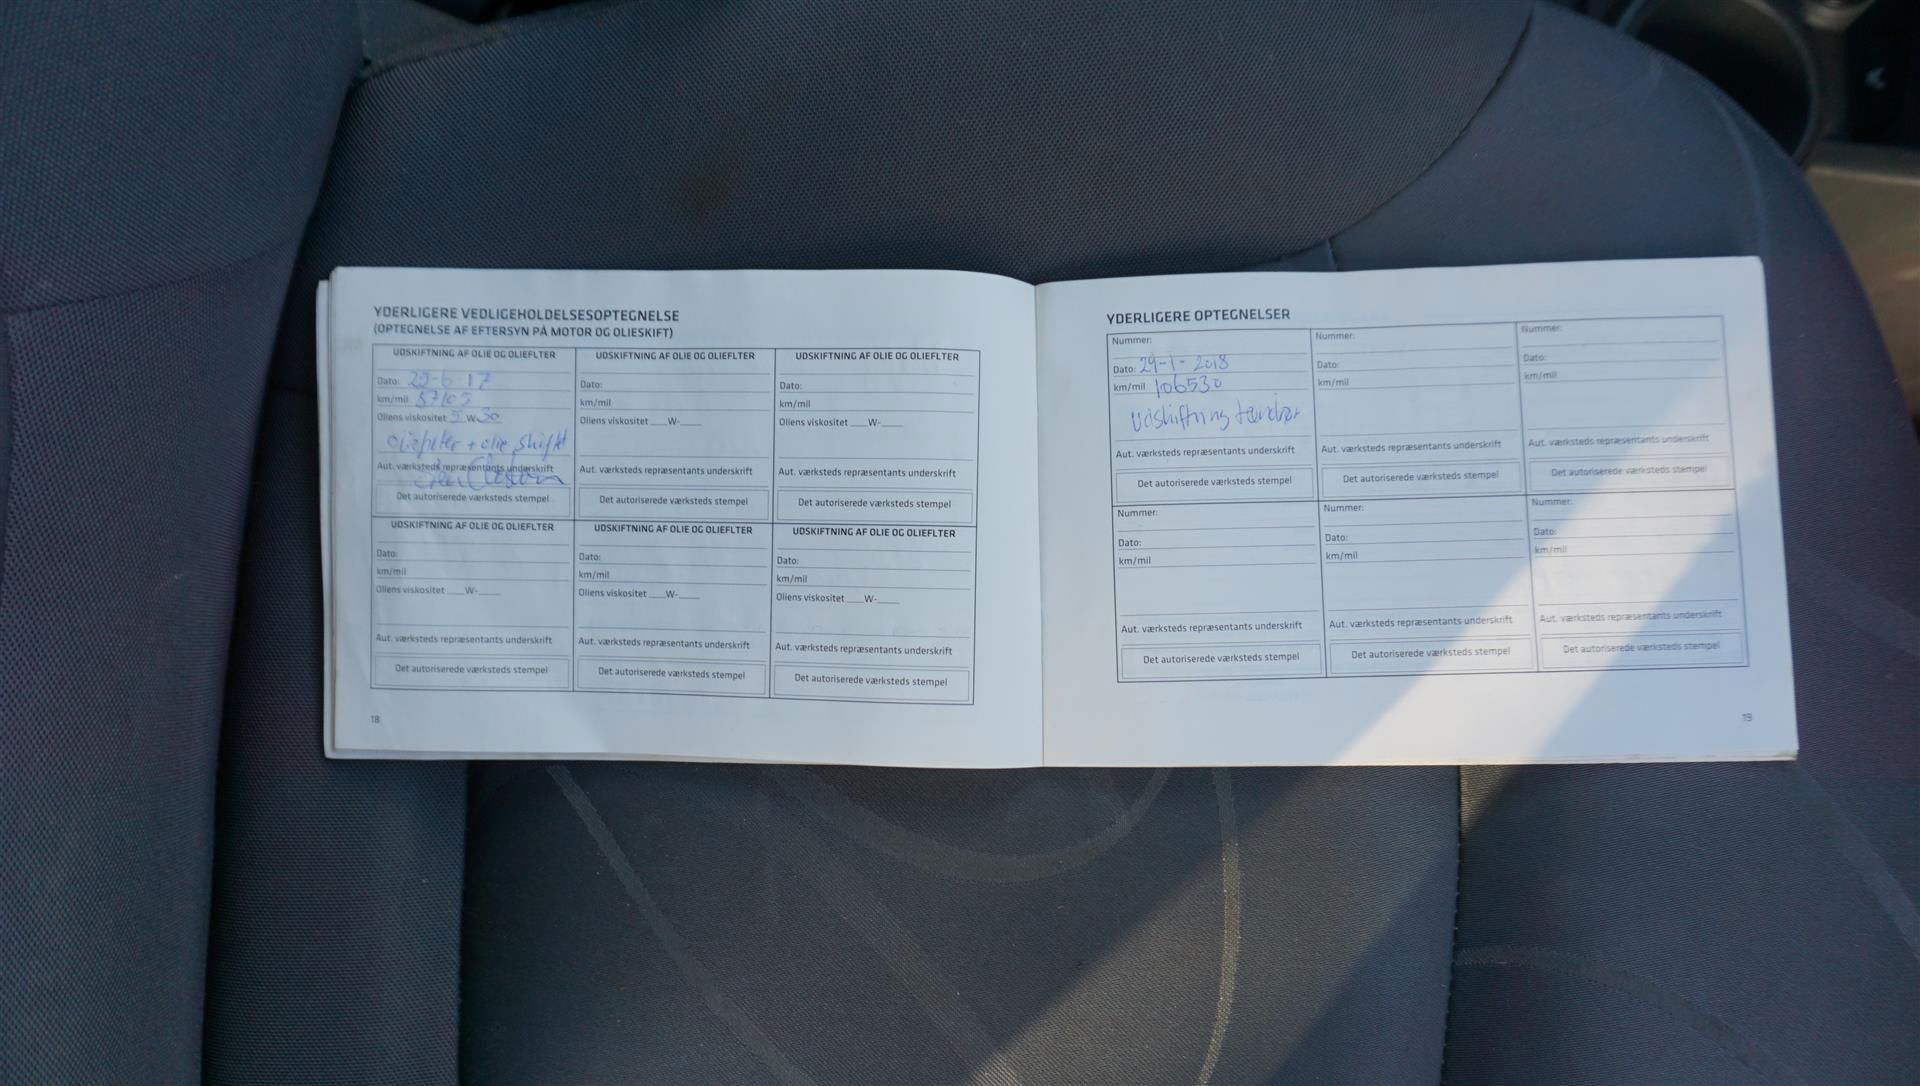 YDERLIGERE VEDLIGEHOLDELSESOPTEGNELSE
(OPTEGNELSE AF EFTERSYN PÅ MOTOR OG OLIESKIFT)
UDSKIFTNING AF OLIE OG OLIEFLTER
Dato: 22-6-17
km/mil
Oliens viskositet 5 W-30
oliefilter + olie skift
Aut. værksteds repræsentants underskrift
Det autoriserede værksteds stempel
UDSKIFTNING AF OLIE OG OLIEFLTER
Dato:
km/mil
Oliens viskositet ___W-____
Aut. værksteds repræsentants underskrift
Det autoriserede værksteds stempel
UDSKIFTNING AF OLIE OG OLIEFLTER
Dato:
km/mil
Oliens viskositet ___W-____
Aut. værksteds repræsentants underskrift
Det autoriserede værksteds stempel
UDSKIFTNING AF OLIE OG OLIEFLTER
Dato:
km/mil
Oliens viskositet ___W-____
Aut. værksteds repræsentants underskrift
Det autoriserede værksteds stempel
UDSKIFTNING AF OLIE OG OLIEFLTER
Dato:
km/mil
Oliens viskositet ___W-____
Aut. værksteds repræsentants underskrift
Det autoriserede værksteds stempel
UDSKIFTNING AF OLIE OG OLIEFLTER
Dato:
km/mil
Oliens viskositet ___W-____
Aut. værksteds repræsentants underskrift
Det autoriserede værksteds stempel
18
YDERLIGERE OPTEGNELSER
Nummer:
Dato: 29-1-2018
km/mil 106530
Udskiftning tændrør
Aut. værksteds repræsentants underskrift
Det autoriserede værksteds stempel
Nummer:
Dato:
km/mil
Aut. værksteds repræsentants underskrift
Det autoriserede værksteds stempel
Nummer:
Dato:
km/mil
Aut. værksteds repræsentants underskrift
Det autoriserede værksteds stempel
Nummer:
Dato:
km/mil
Aut. værksteds repræsentants underskrift
Det autoriserede værksteds stempel
Nummer:
Dato:
km/mil
Aut. værksteds repræsentants underskrift
Det autoriserede værksteds stempel
Nummer:
Dato:
km/mil
Aut. værksteds repræsentants underskrift
Det autoriserede værksteds stempel
19